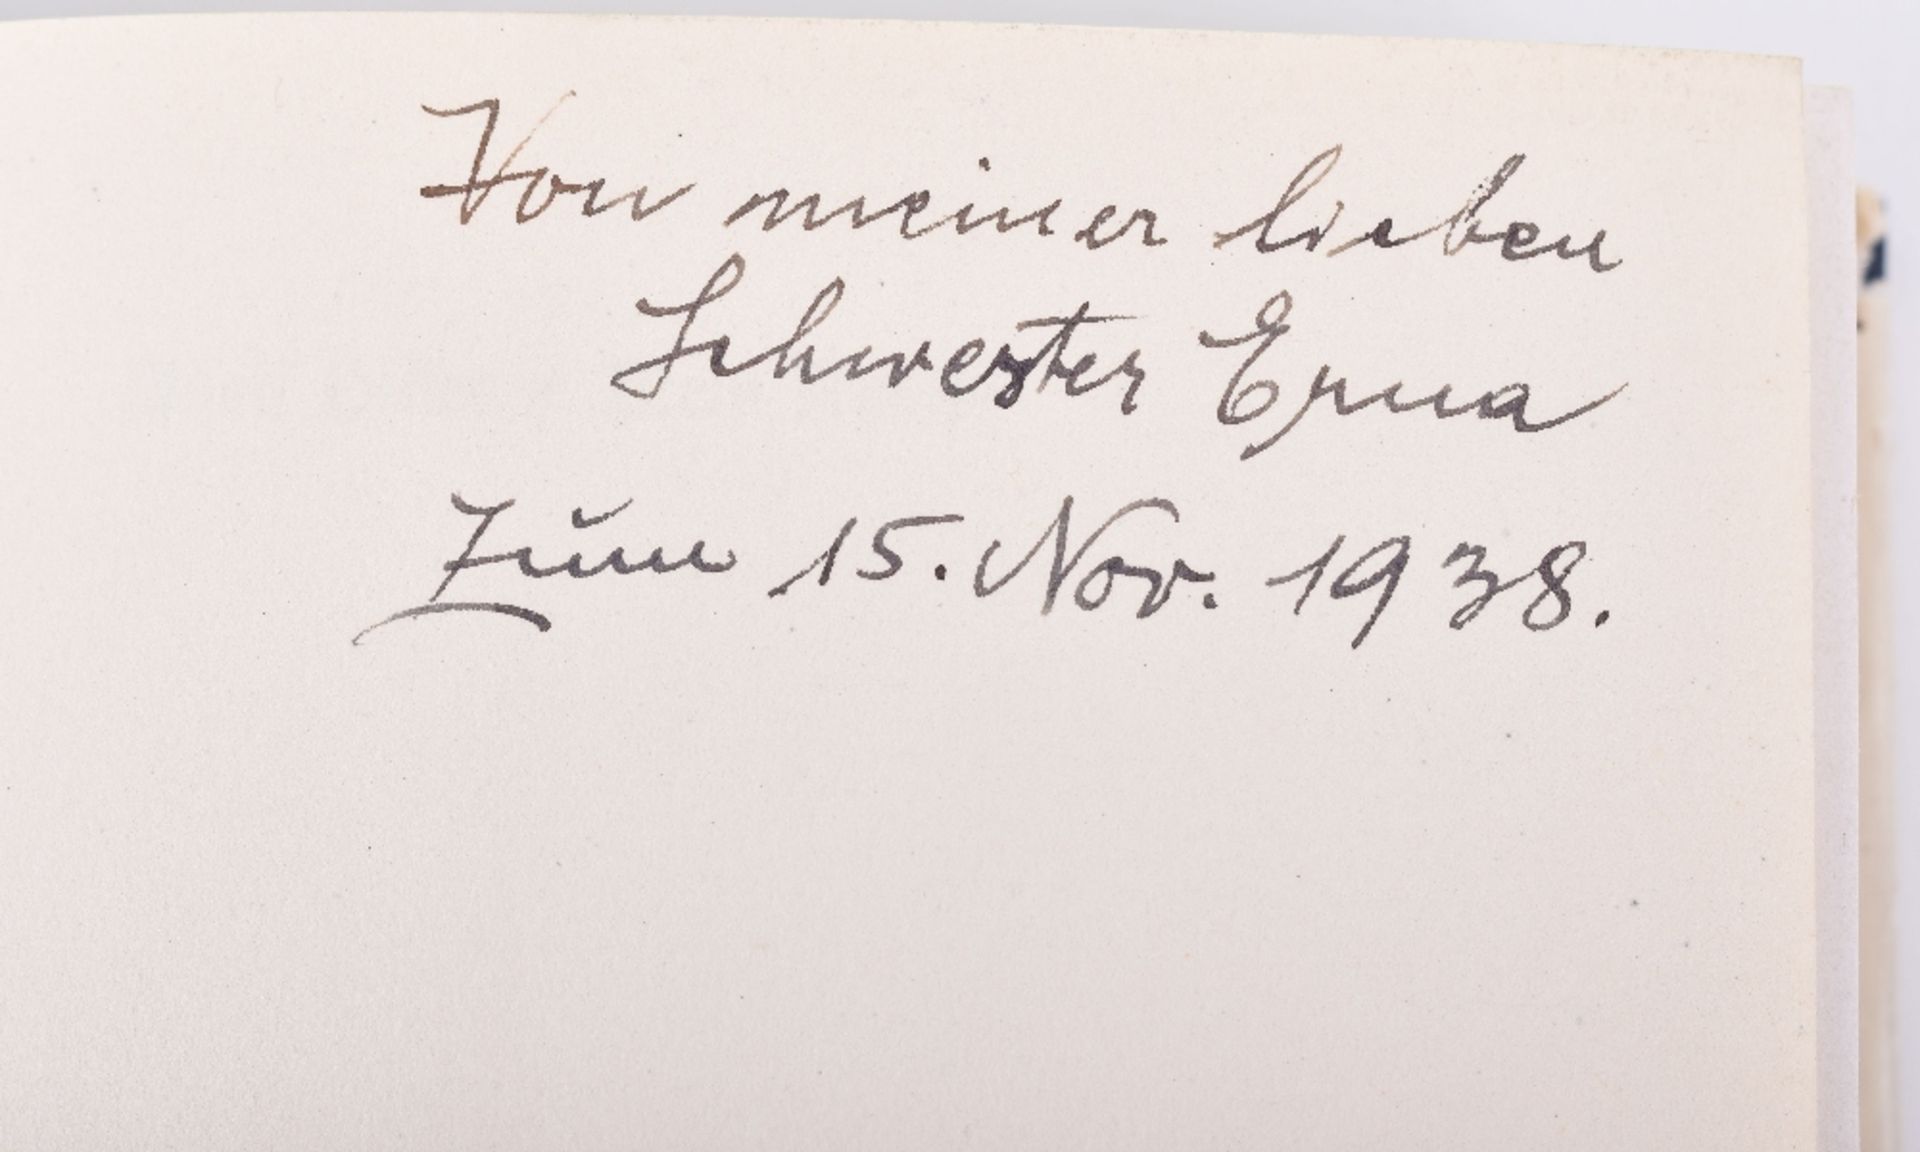 Von meiner lieben
Schwester Erna
Zum 15. Nov. 1938.